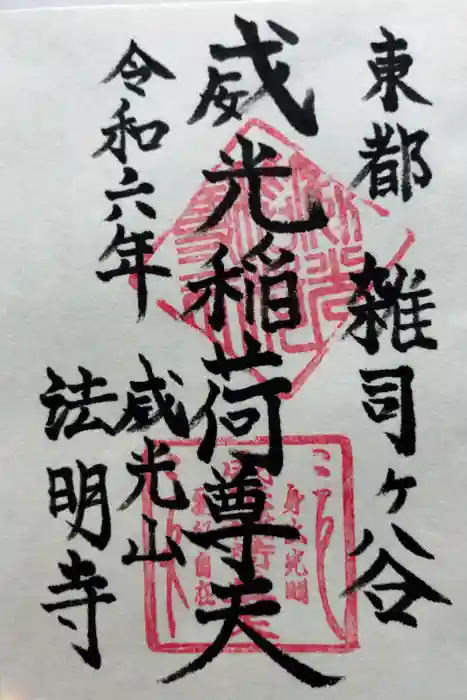 東都 雑司ヶ谷
威光稲荷尊天
令和六年
威光山
法明寺